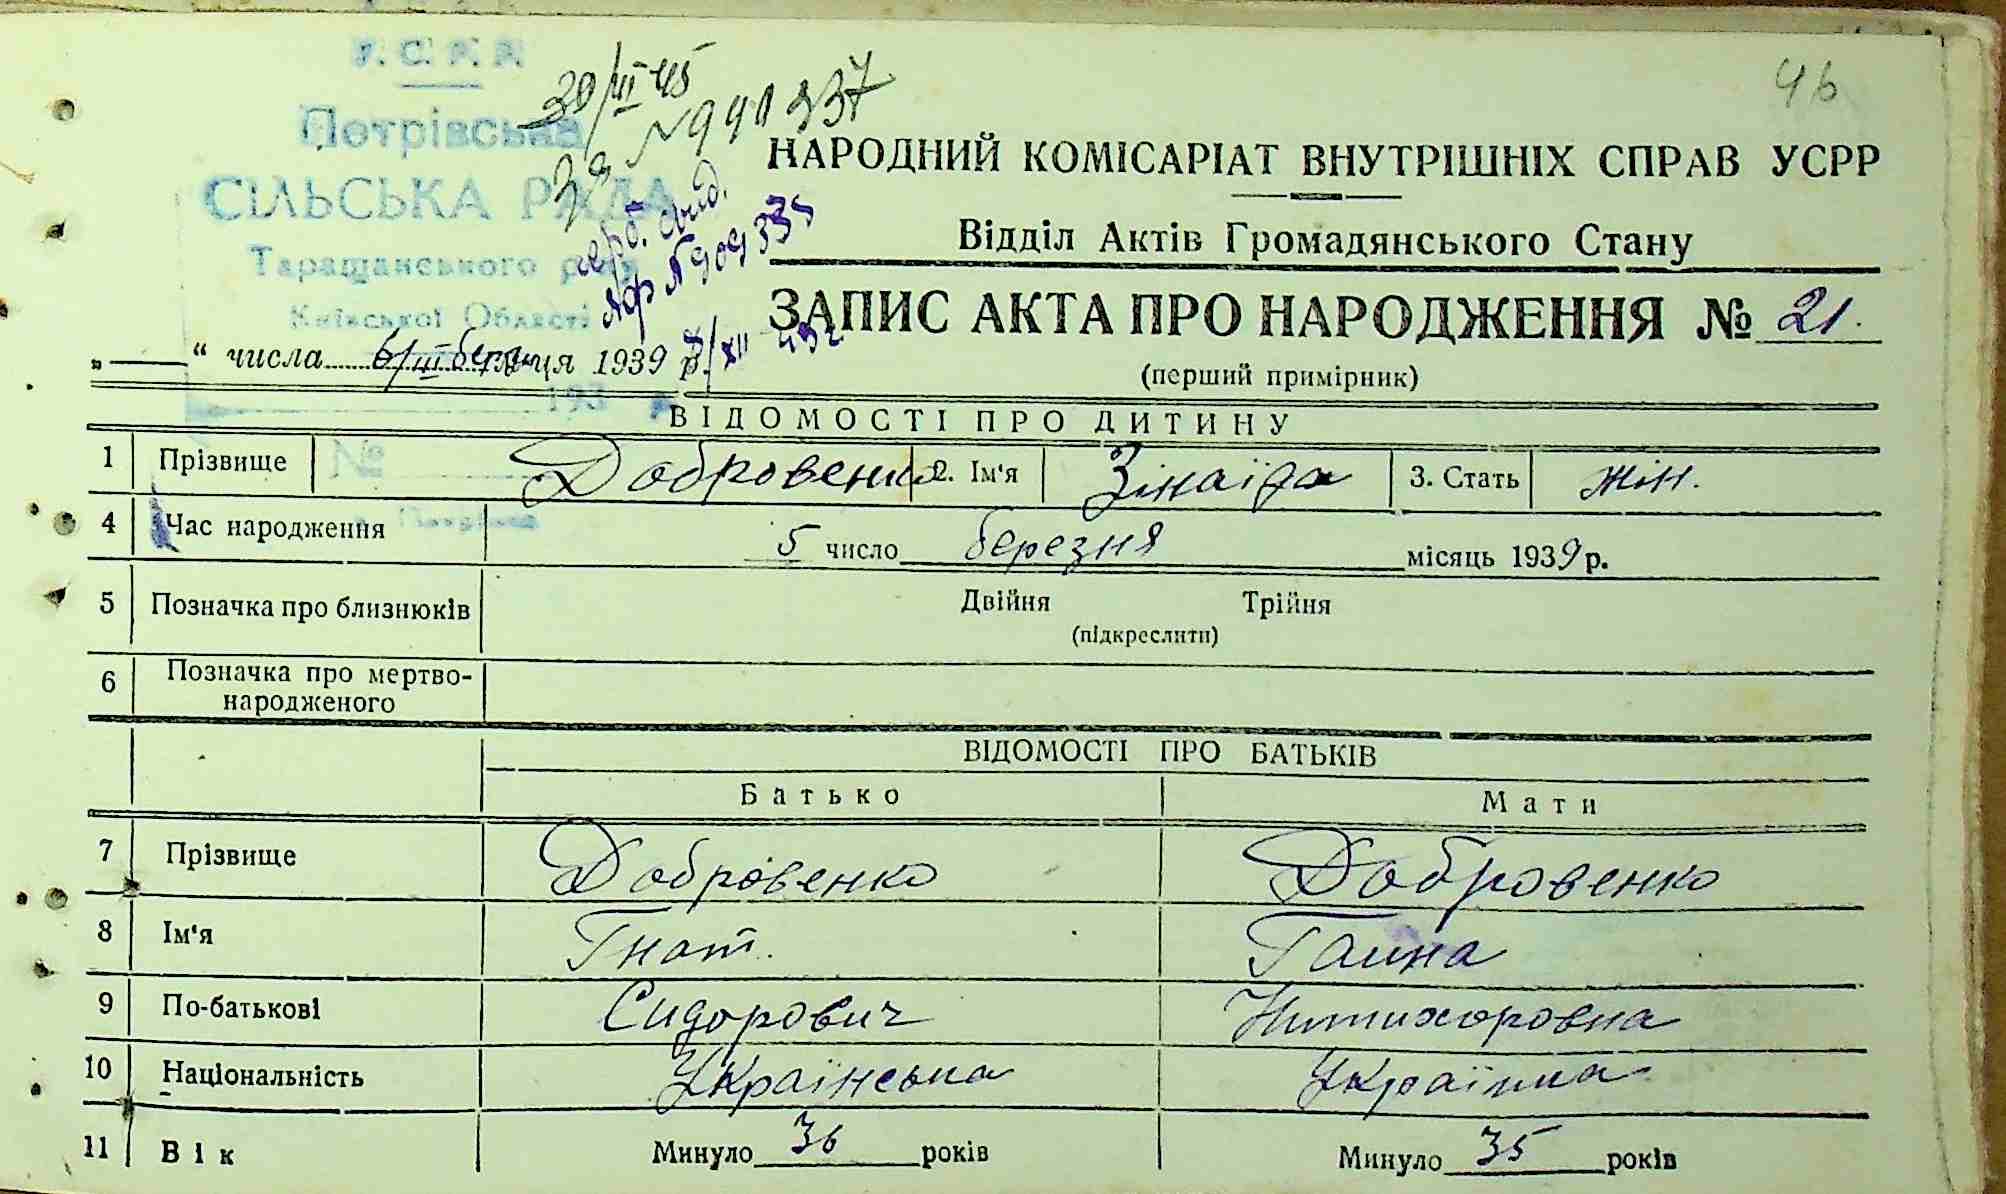 У. С. Р. Р.
Петрівська
СІЛЬСЬКА РАДА
Таращанського р-ну
Київської Області
193
№
30/III 45
За № 990337
герб. свид.
№ 909335
/XII 49 г.
46
НАРОДНИЙ КОМІСАРІАТ ВНУТРІШНІХ СПРАВ УСРР
Відділ Актів Громадянського Стану
ЗАПИС АКТА ПРО НАРОДЖЕННЯ № 21.
(перший примірник)
„ — “ числа 6/III березня ця 1939 р.
ВІДОМОСТІ ПРО ДИТИНУ
1 Прізвище Добровенко 2. Ім'я Зінаїда 3. Стать жін.
4 Час народження 5 число березня місяць 1939 р.
5 Позначка про близнюків Двійня Трійня
(підкреслити)
6 Позначка про мертво-
народженого
ВІДОМОСТІ ПРО БАТЬКІВ
Батько Мати
7 Прізвище Добровенко Добровенко
8 Ім'я Гнат. Ганна
9 По-батькові Сидорович Ничихоровна
10 Національність Українська Українка
11 Вік Минуло 36 років Минуло 35 років